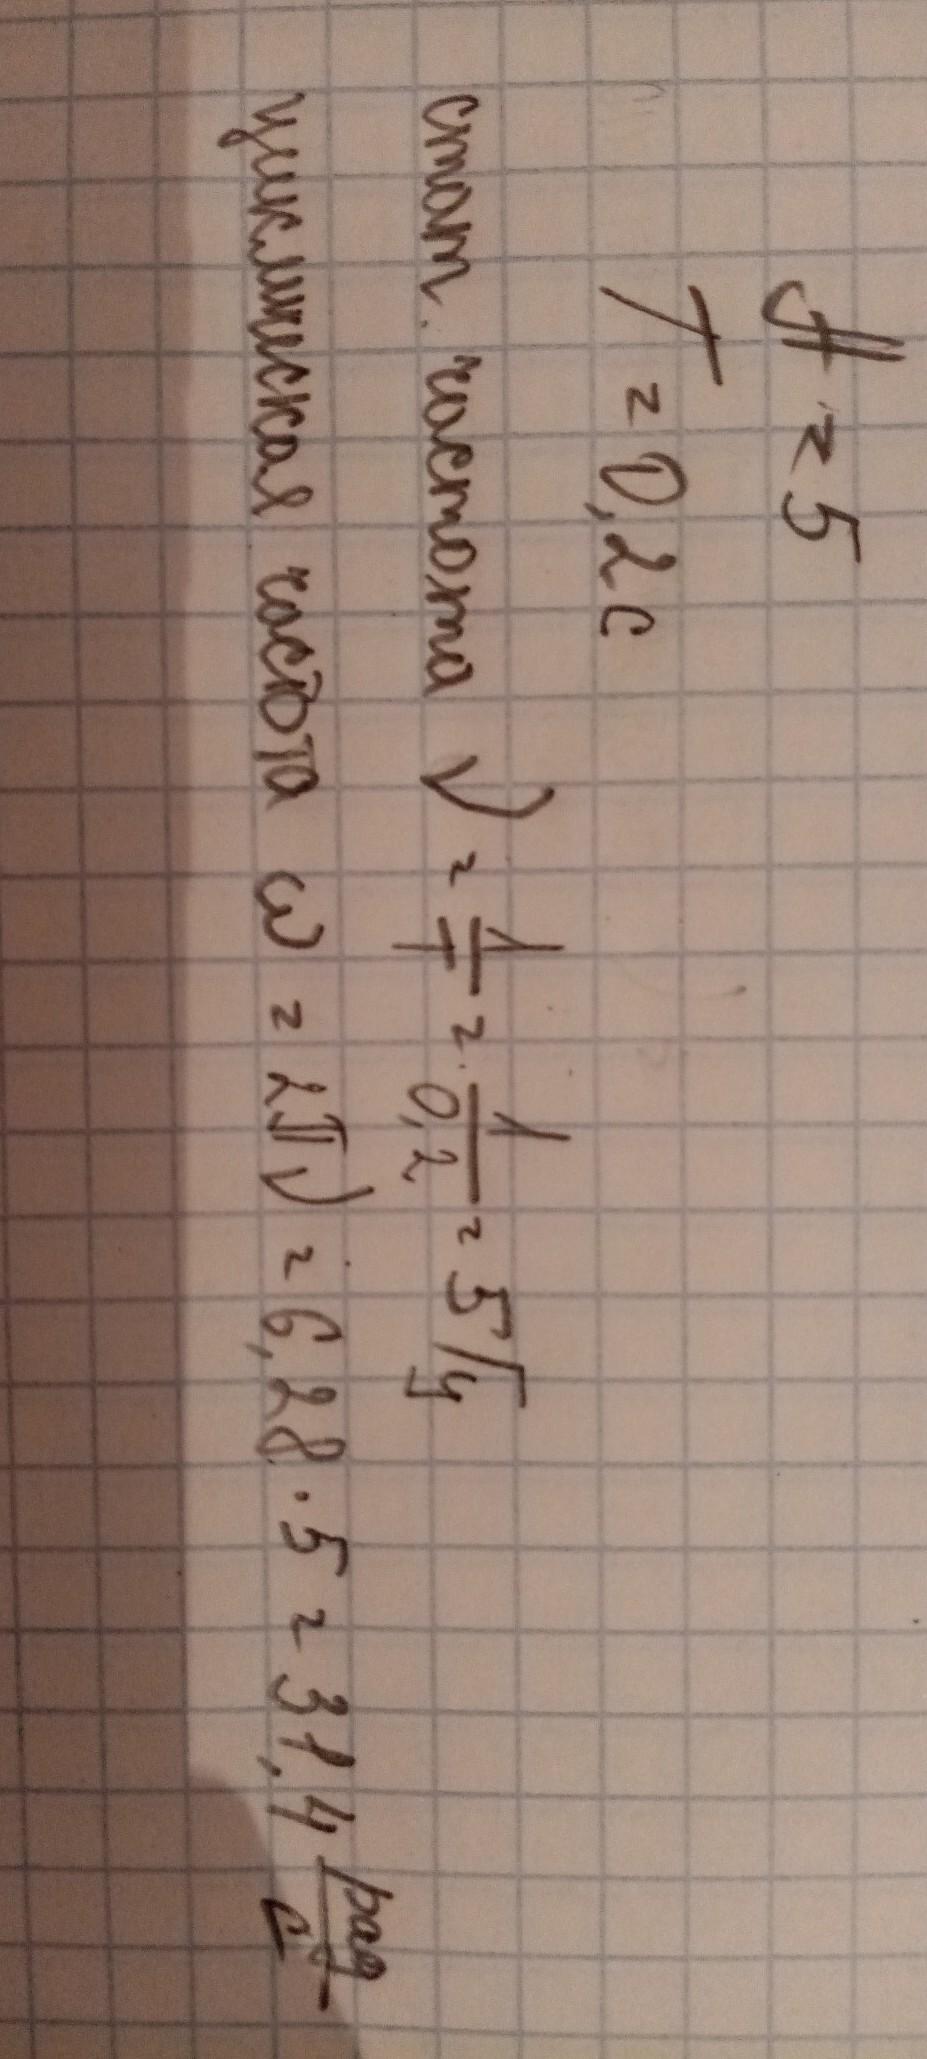 A = 5
T = 0,2 с
стат. частота ν = 1/T = 1/0,2 = 5 Гц
циклическая частота ω = 2πν = 6,28 · 5 = 31,4 рад/с